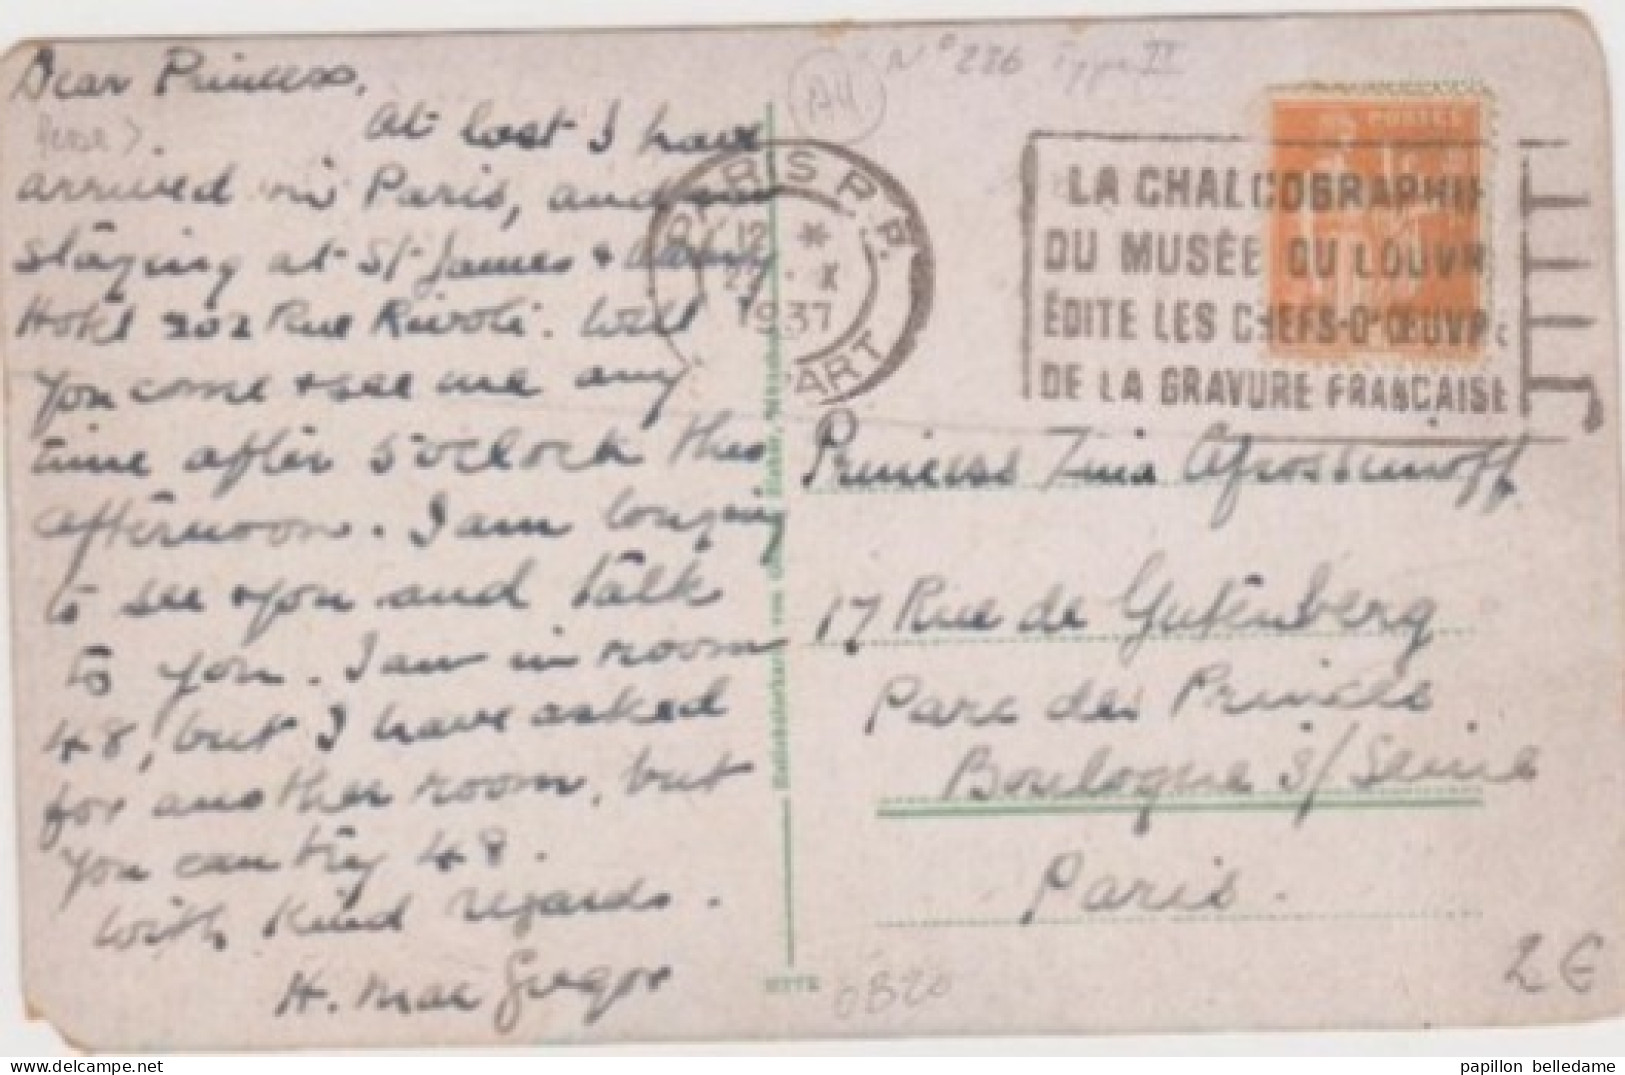 Dear Princess,
At last I have
arrived in Paris, and am
staying at St James & Albany
Hotel 202 Rue Rivoli. Will
you come & see me any
time after 5 o'clock this
afternoon. I am longing
to see you and talk
to you. I am in room
48, but I have asked
for another room, but
you can try 48.
With kind regards.
H. MacGregor
N° 286 Type II
PARIS R.P.
12 *
X
1937
DEPART
LA CHALCOGRAPHIE
DU MUSÉE DU LOUVRE
ÉDITE LES CHEFS-D'ŒUVRE
DE LA GRAVURE FRANÇAISE
POSTES
Princess Zina
17 Rue de Gutenberg
Parc des Princes
Boulogne s/ Seine
Paris.
2 €
papillon belledame